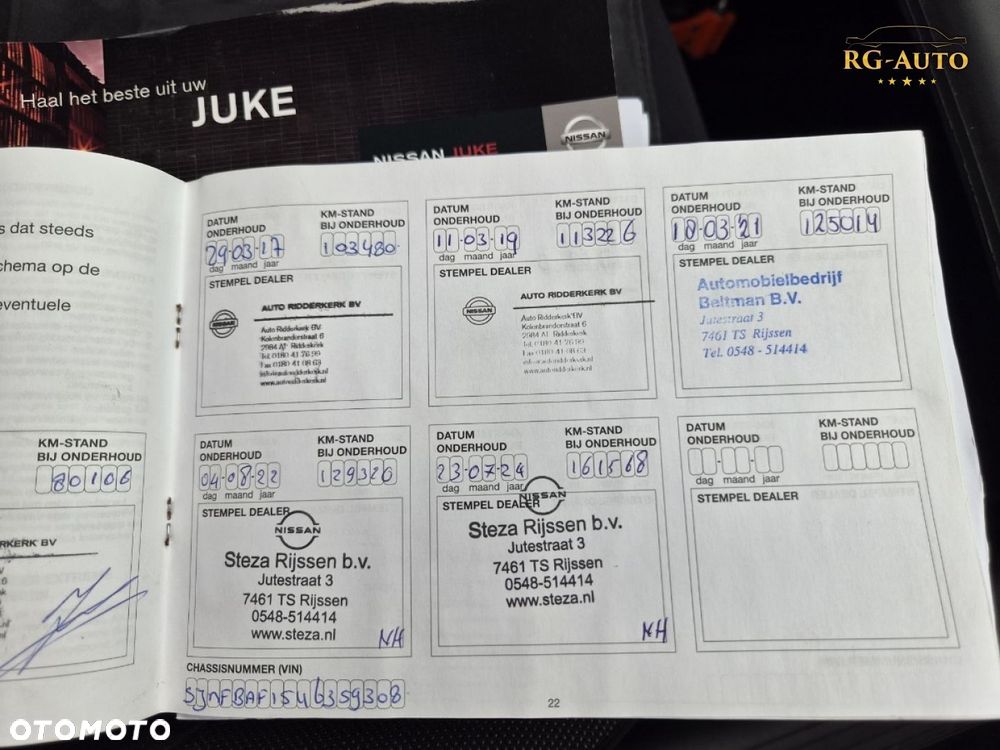 RG-AUTO
Haal het beste uit uw
JUKE
NISSAN JUKE
NISSAN
s dat steeds
chema op de
eventuele
KM-STAND
BIJ ONDERHOUD
80106
RKERK BV
DATUM
ONDERHOUD
29-03-17
dag maand jaar
KM-STAND
BIJ ONDERHOUD
103480
STEMPEL DEALER
NISSAN
AUTO RIDDERKERK BV
Auto Ridderkerk BV
Kolenbranderstraat 6
2984 AT Ridderkerk
Tel. 0180 41 76 99
Fax 0180 41 08 63
DATUM
ONDERHOUD
11-03-19
dag maand jaar
KM-STAND
BIJ ONDERHOUD
113226
STEMPEL DEALER
NISSAN
AUTO RIDDERKERK BV
Auto Ridderkerk BV
Kolenbranderstraat 6
2984 AT Ridderkerk
Tel. 0180 41 76 99
Fax 0180 41 08 63
www.autoridderkerk.nl
DATUM
ONDERHOUD
18-03-21
dag maand jaar
KM-STAND
BIJ ONDERHOUD
125014
STEMPEL DEALER
Automobielbedrijf
Beltman B.V.
Jutestraat 3
7461 TS Rijssen
Tel. 0548 - 514414
DATUM
ONDERHOUD
04-08-22
dag maand jaar
KM-STAND
BIJ ONDERHOUD
129326
STEMPEL DEALER
NISSAN
Steza Rijssen b.v.
Jutestraat 3
7461 TS Rijssen
0548-514414
www.steza.nl
NH
DATUM
ONDERHOUD
23-07-24
dag maand jaar
KM-STAND
BIJ ONDERHOUD
161568
STEMPEL DEALER
NISSAN
Steza Rijssen b.v.
Jutestraat 3
7461 TS Rijssen
0548-514414
www.steza.nl
NH
DATUM
ONDERHOUD
dag maand jaar
KM-STAND
BIJ ONDERHOUD
STEMPEL DEALER
CHASSISNUMMER (VIN)
SJNFBAF15U6359308
22
OTOMOTO